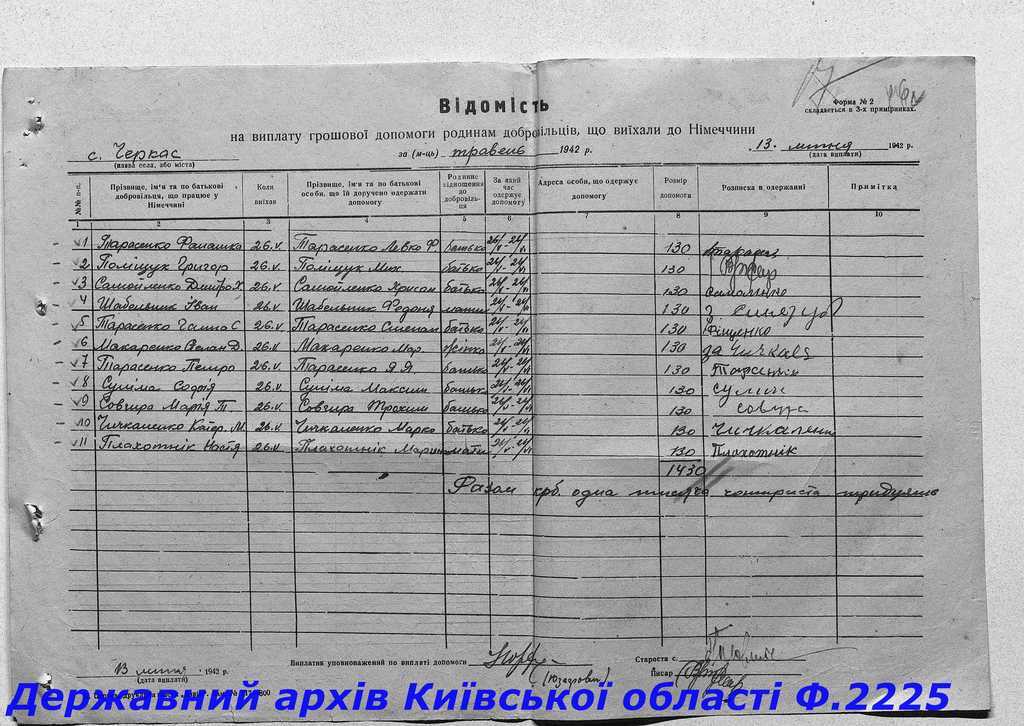 Відомість
Форма № 2
складається в 3-х примірниках.
на виплату грошової допомоги родинам добровільців, що виїхали до Німеччини
с. Черкас за (м-ць) травень 1942 р. 13. липня 1942 р.
(назва села, або міста) (дата виплати)
№№ п-п. Прізвище, ім'я та по батькові добровільця, що працює у Німеччині Коли виїхав Прізвище, ім'я та по батькові особи, що їй доручено одержати допомогу Родинне відношення до добровільця За який час одержує допомогу Адреса особи, що одержує допомогу Розмір допомога Розписка в одержанні Примітка
1 2 3 4 5 6 7 8 9 10
1 Тарасенко 26.V Тарасенко Левко Ф. батько 24/V-24/VI 130
2 Поліщук Григор 26.V. Поліщук Мих. батько 24/V-24/VI 130
3 Самойленко Дмитро Х. 26.V. Самойленко батько 24/V-24/VI 130
4 Шабельник Іван 26.V Шабельник Федоня мати 24/V-24/VI 130
5 Тарасенко Ганна С 26.V. Тарасенко Степан батько 24/V-24/VI 130
6 Макаренко Д. 26.V Макаренко Мар. жінка 24/V-24/VI 130 за Чичкань
7 Тарасенко Петро 26.V. Тарасенко Я. Я. батько 24/V-24/VI 130
8 Суліма Софія 26.V. Суліма Максим батько 24/V-24/VI 130
9 Совгира Марія Т. 26.V Совгира Трохим батько 24/V-24/VI 130
10 Чичканенко М. 26.V. Чичканенко Марко батько 24/V-24/VI 130
11 Плахотнік Надія 26.V. Плахотнік мати 24/V-24/VI 130 Плахотнік
1430
Разом крб. одна тисяча чотириста тридцять
13 липня 1942 р. Виплатив уповноважений по виплаті допомоги Староста с.
(дата виплати) Писар
Державний архів Київської області Ф.2225